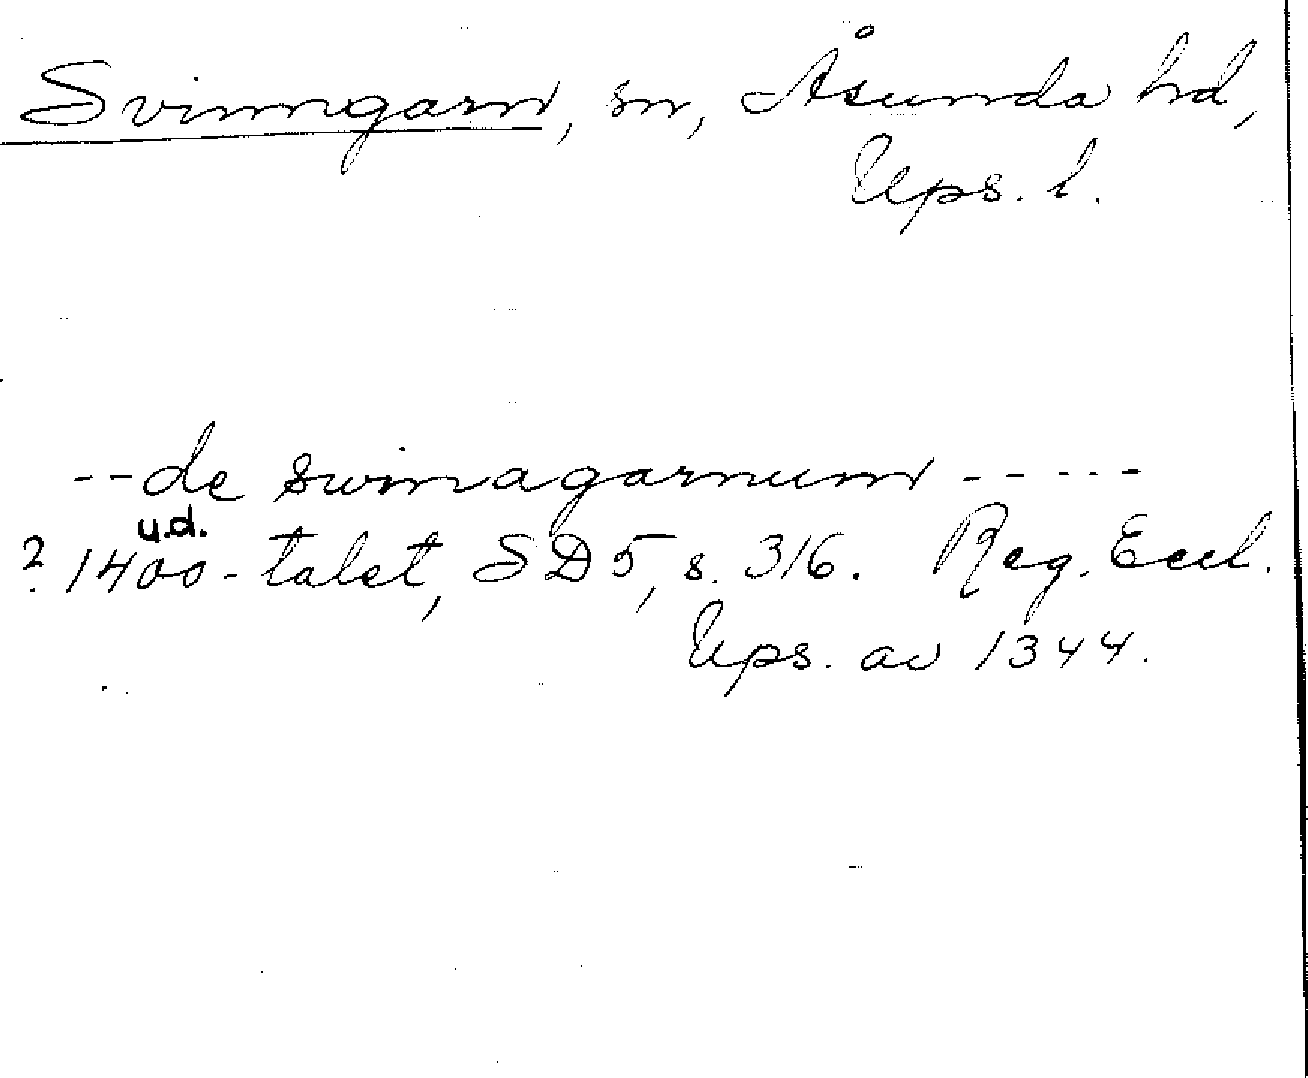 Svinngarn, sn, Åsunda hd,
Ups. l.
--de swinagarnum -----
u.d.
? 1400-talet, SD 5, s. 316. Reg. Eccl.
Ups. av 1344.